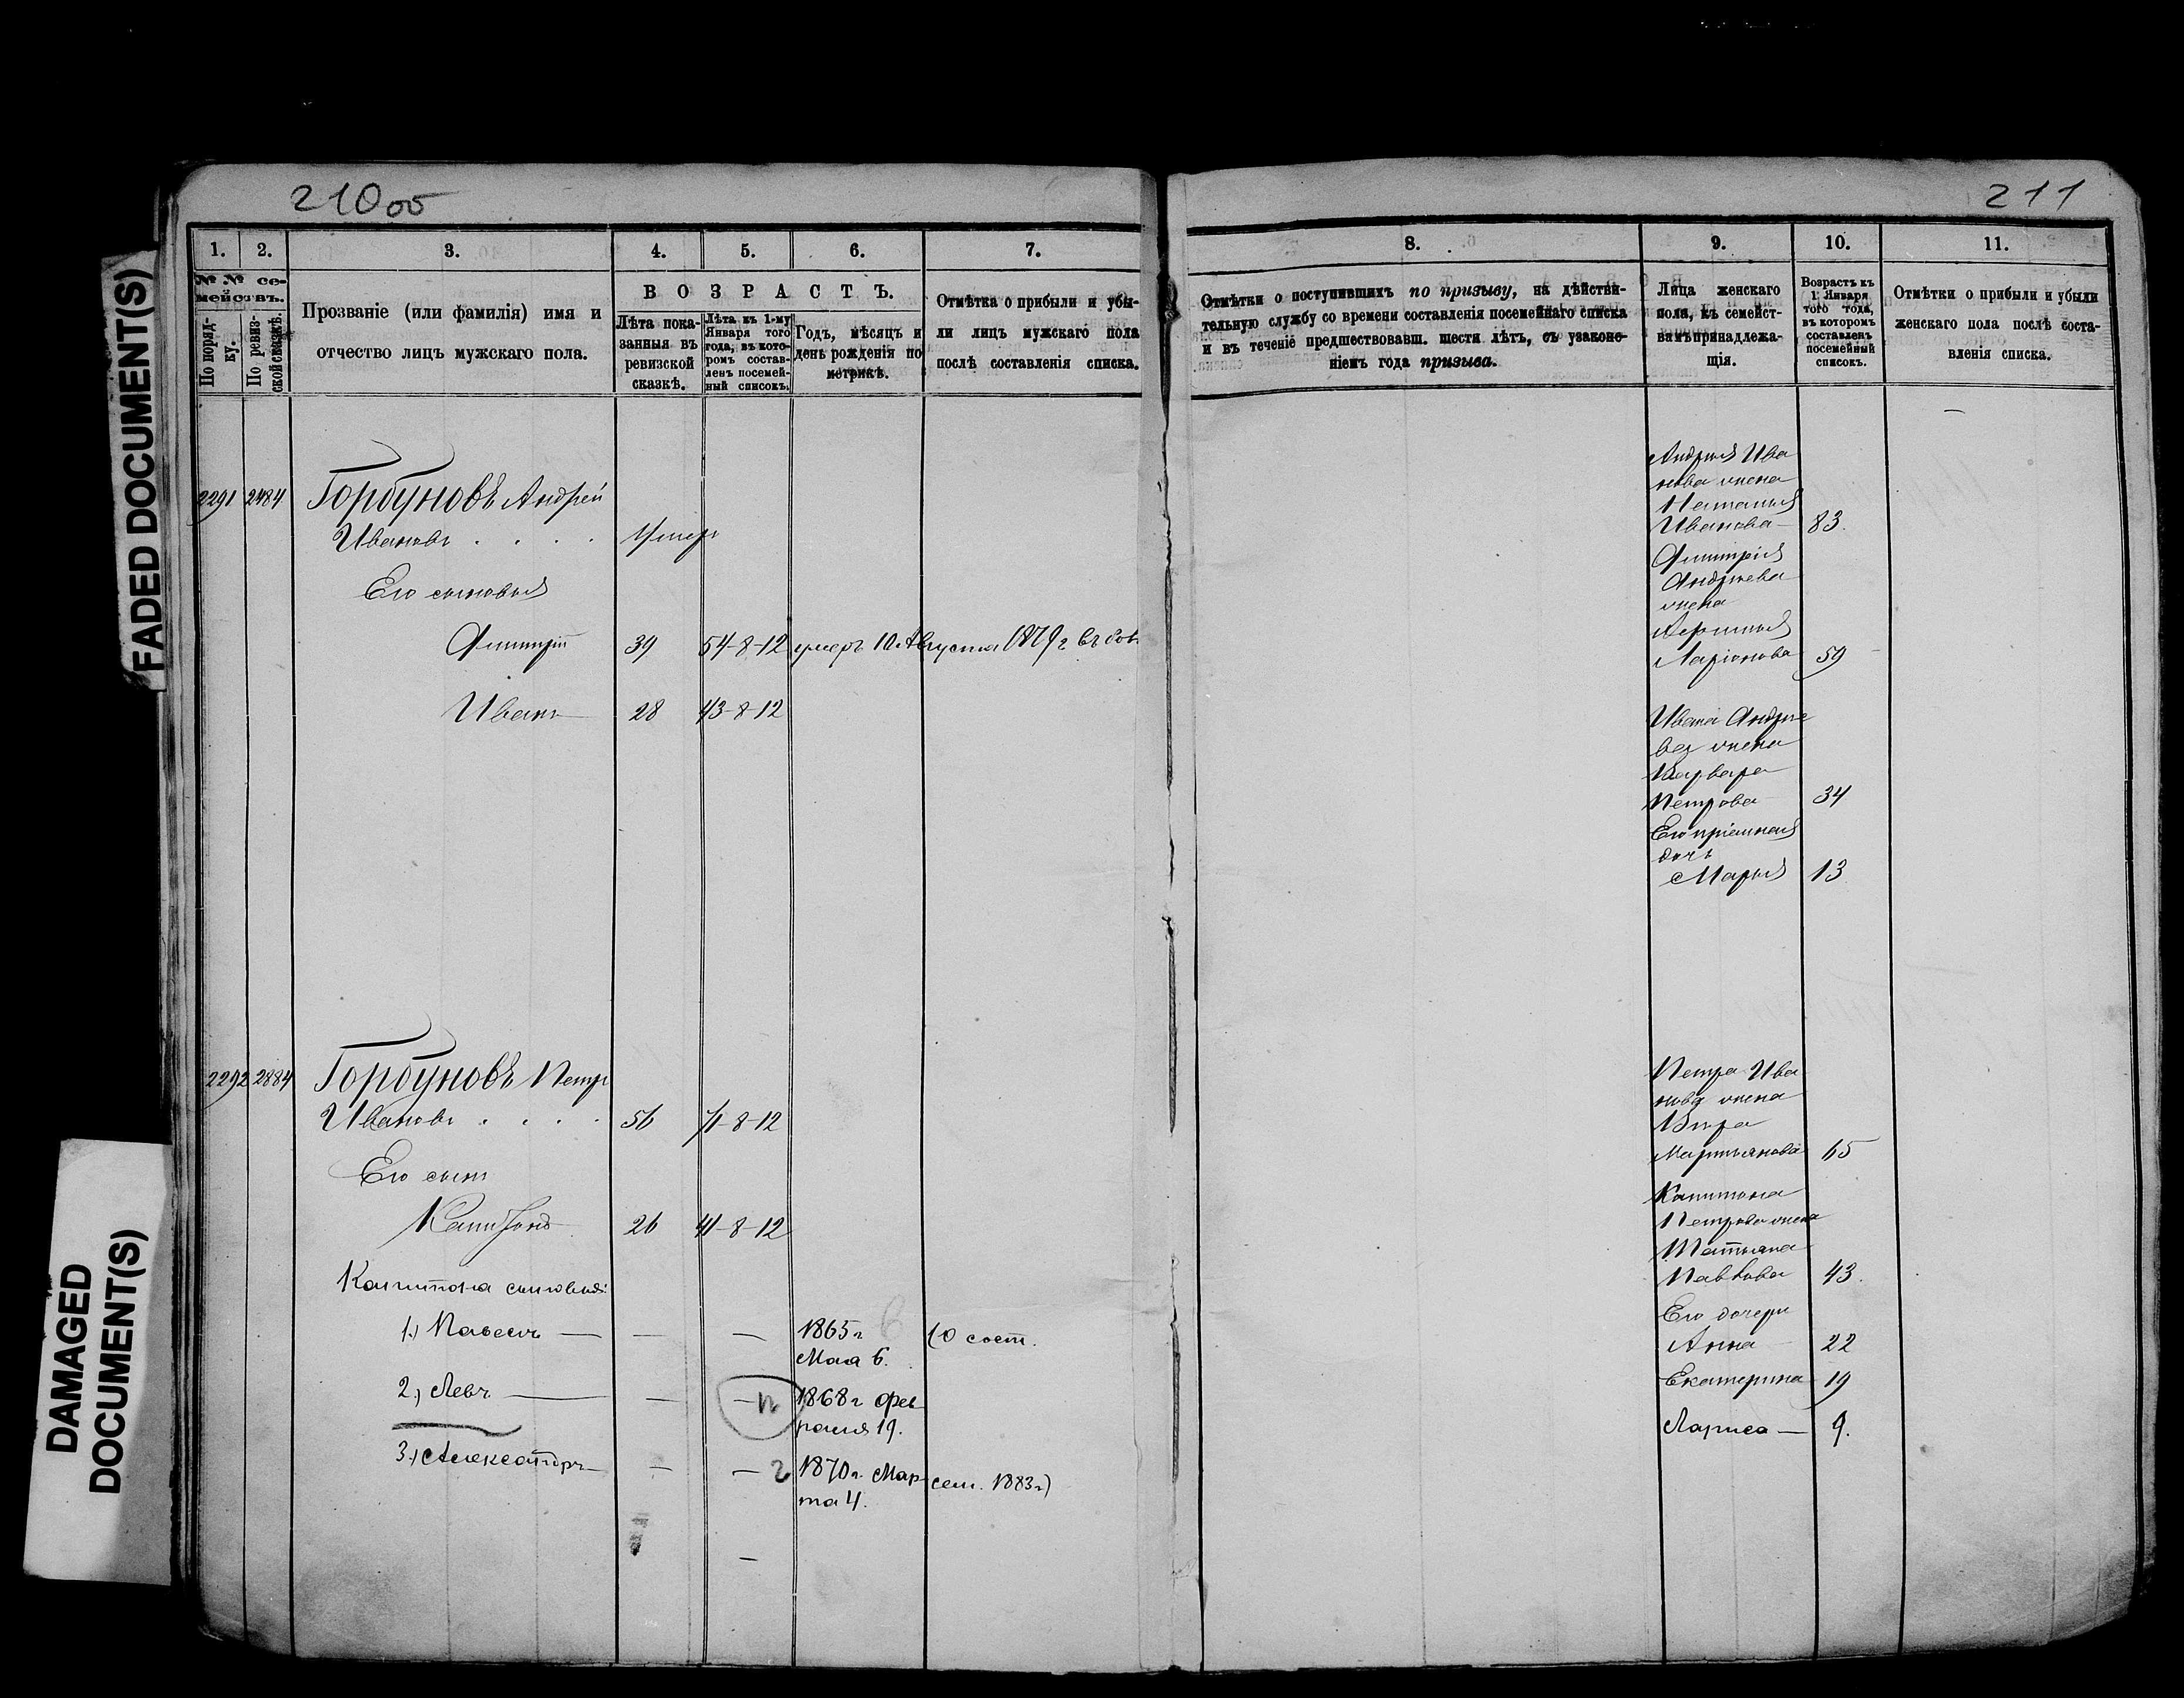 210об
211
FADED DOCUMENT(S)
DAMAGED
DOCUMENT(S)
1.
2.
3.
4.
5.
6.
7.
№ № се-
мействъ.
По поряд-
ку.
По ревиз-
ской сказкѣ.
Прозваніе (или фамилія) имя и
отчество лицъ мужскаго пола.
ВОЗРАСТЪ.
Лѣта пока-
занныя въ
ревизской
сказкѣ.
Лѣта къ 1-му
Января того
года, въ кото-
ромъ состав-
ленъ посемей-
ный списокъ.
Годъ, мѣсяцъ и
день рожденія по
метрикѣ.
Отмѣтка о прибыли и убы-
ли лицъ мужскаго пола
послѣ составленія списка.
2291 2484 Горбуновъ Андрей
Ивановъ . . . . Умеръ
Его сыновья
Дмитрій 39 54-8-12 умеръ 10 Августа 1879 г
Иванъ 28 43-8-12
2292 2884 Горбуновъ Петръ
Ивановъ . . . . 56 71-8-12
Его сынъ
Капитонъ 26 41-8-12
Капитона сыновья:
1.) Павелъ — — — 1865 г (0 сост.
Мая 6.
2.) Левъ — — — 1868 г Фев
раля 19.
3.) Александръ — — — 2 1870 г. Мар- сем. 1883 г)
та 4.
8.
9.
10.
11.
Отмѣтки о поступившихъ по призыву, на дѣйстви-
тельную службу со времени составленія посемейнаго списка
и въ теченіе предшествовавш. шести лѣтъ, съ узаконе-
ніемъ года призыва.
Лица женскаго
пола, къ семейст-
вамъ принадлежа-
щія.
Возрастъ къ
1 Января
того года,
въ которомъ
составленъ
посемейный
списокъ.
Отмѣтки о прибыли и убыли
женскаго пола послѣ соста-
вленія списка.
Андрея Ива
нова жена
Наталья
Иванова 83.
Дмитрія
Андреева
жена
Ларіонова 59
Ивана Андрее
ва жена
Варвара
Петрова 34
Его пріемная
дочь
Марья 13
Петра Ива
нова жена
Вѣра
Мартьянова 65
Капитона
Петрова жена
Татьяна
Павлова 43.
Его дочери
Анна 22
Екатерина 19
Лариса — 9.